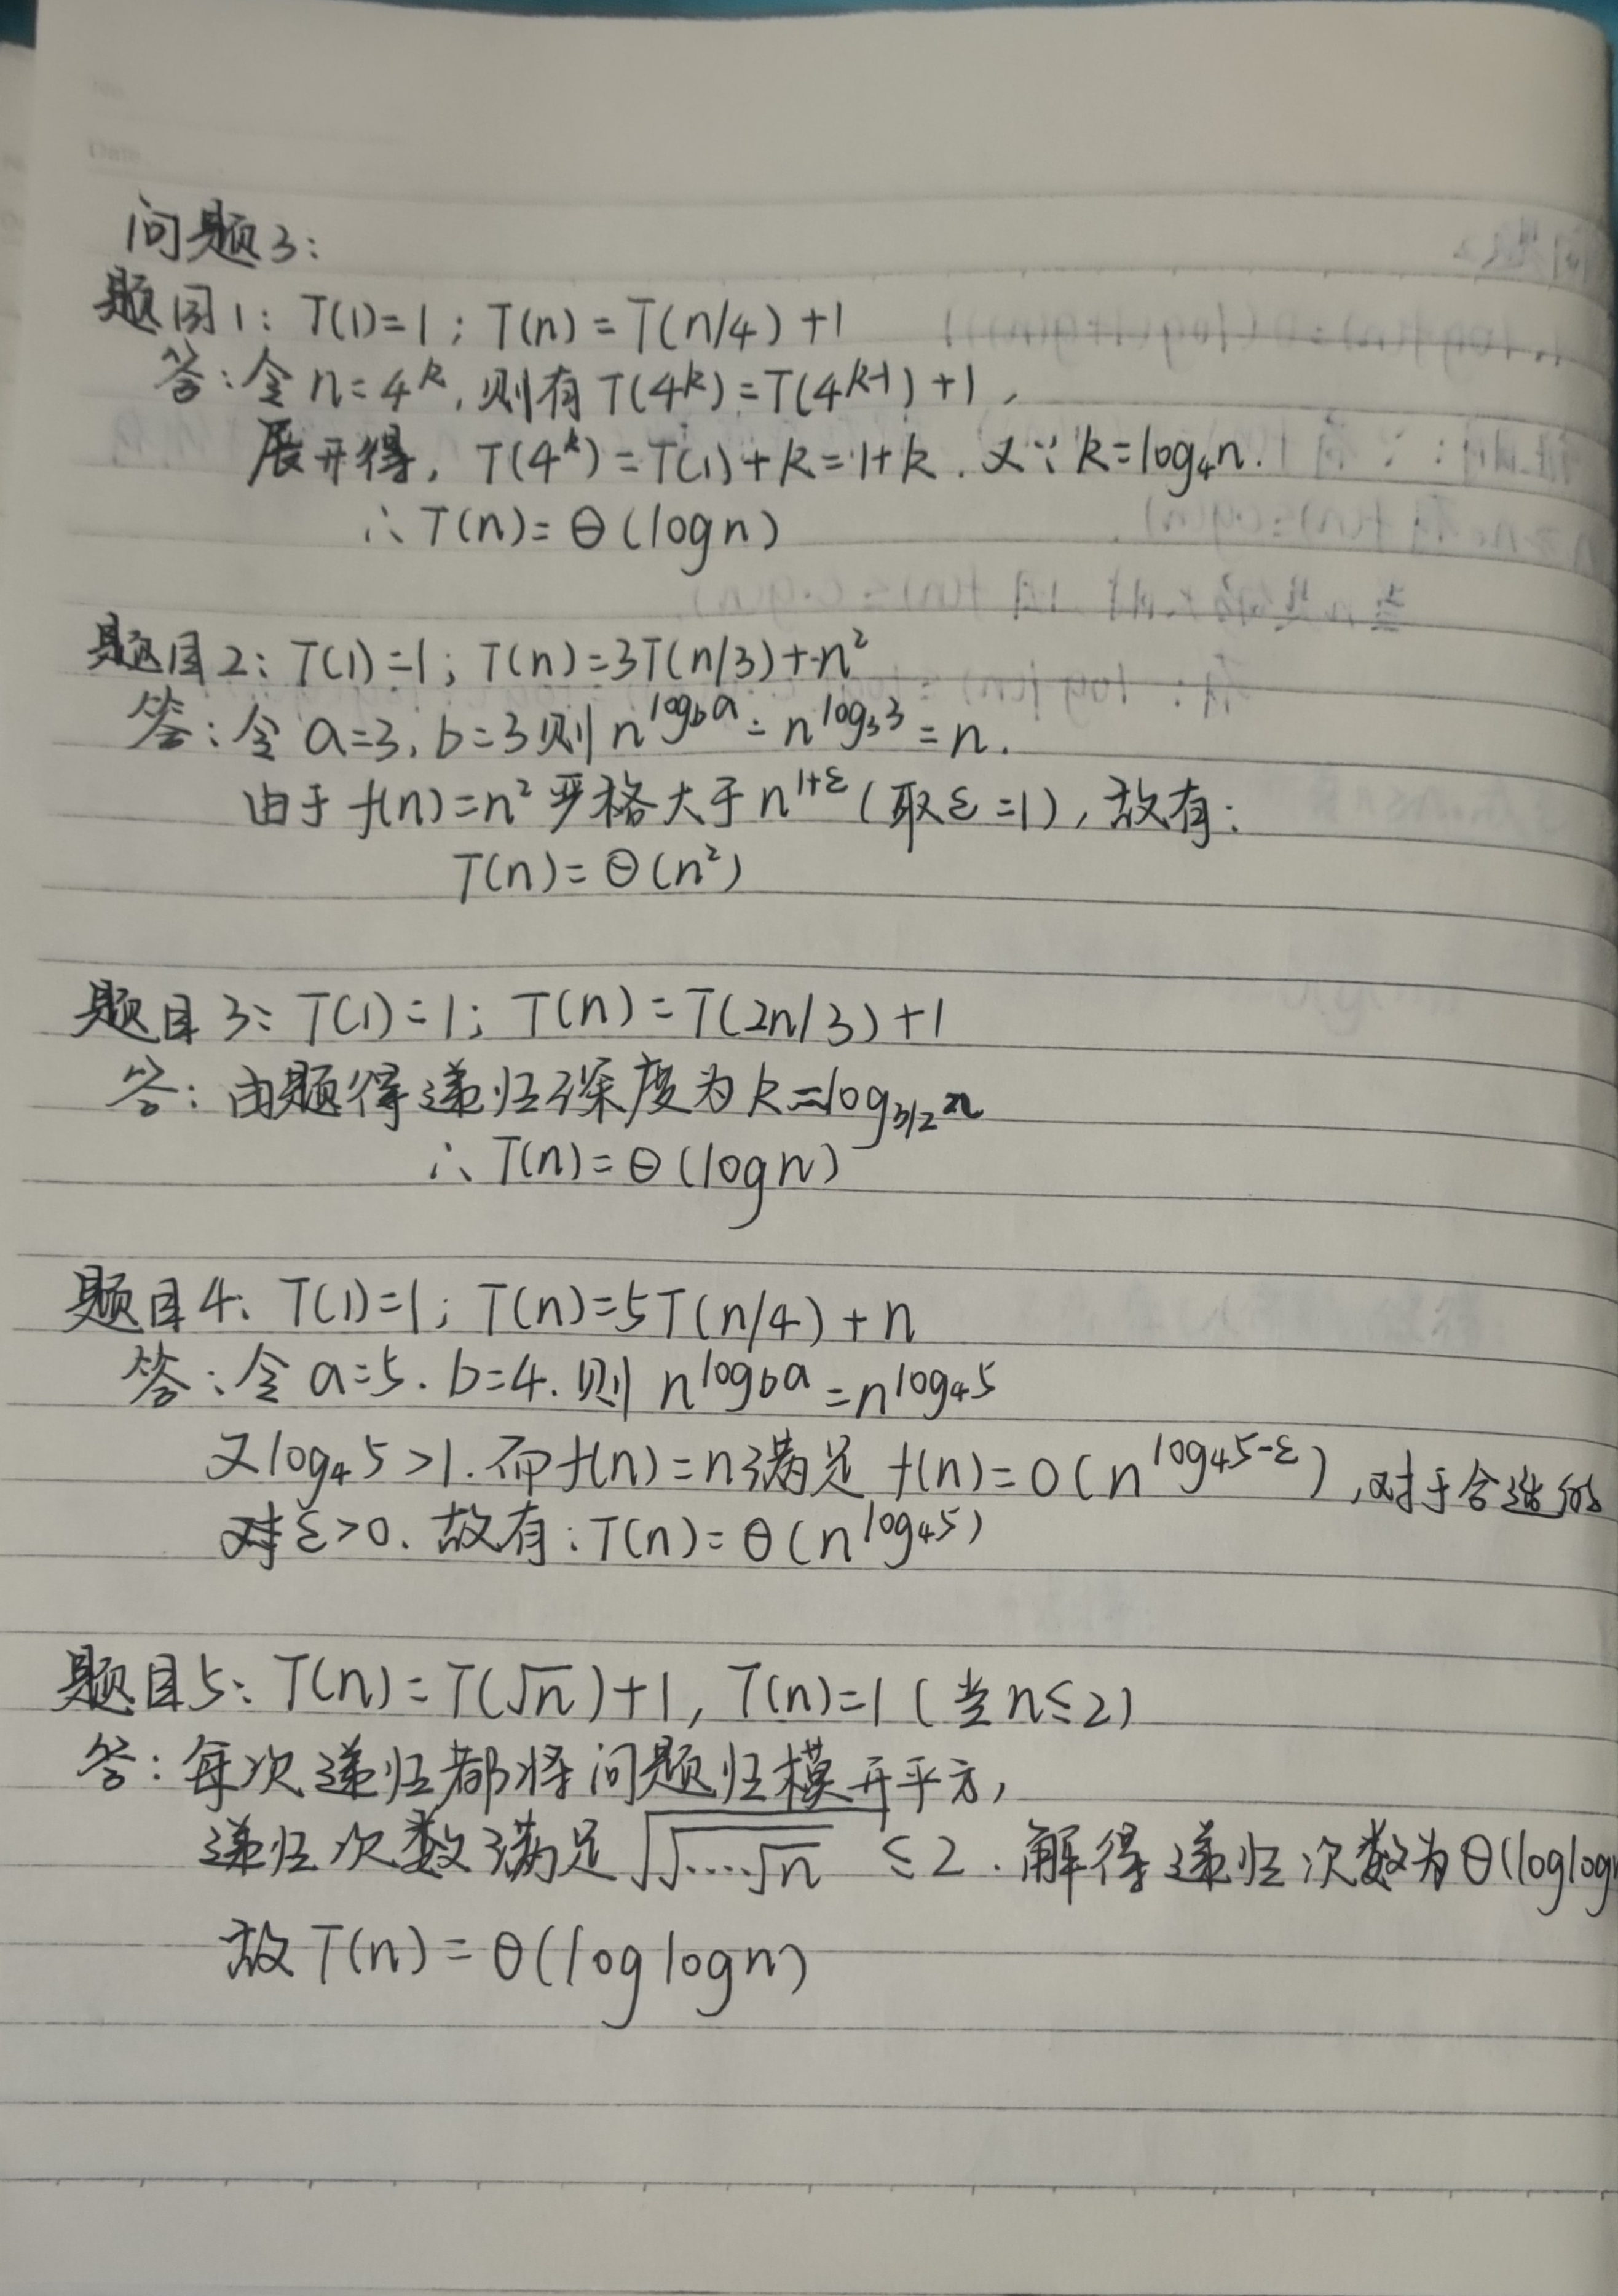 问题3:
题目1: T(1)=1; T(n)=T(n/4)+1
答:令n=4^k,则有T(4^k)=T(4^{k-1})+1,
展开得, T(4^k)=T(1)+k=1+k.又∵k=log₄n.
∴T(n)=Θ(logn)
题目2: T(1)=1; T(n)=3T(n/3)+n²
答:令a=3,b=3则n^{log_b a}=n^{log₃3}=n.
由于f(n)=n²严格大于n^{1+ε}(取ε=1),故有:
T(n)=Θ(n²)
题目3: T(1)=1; T(n)=T(2n/3)+1
答:由题得递归深度为k=log_{3/2}n
∴T(n)=Θ(logn)
题目4: T(1)=1; T(n)=5T(n/4)+n
答:令a=5.b=4.则n^{log_b a}=n^{log₄5}
又log₄5>1.而f(n)=n满足f(n)=O(n^{log₄5-ε}),对于合适的
ε>0.故有:T(n)=Θ(n^{log₄5})
题目5: T(n)=T(√n)+1, T(n)=1(当n≤2)
答:每次递归都将问题归模开平方,
递归次数满足√√....√n ≤2.解得递归次数为Θ(loglogn
故T(n)=Θ(loglogn)